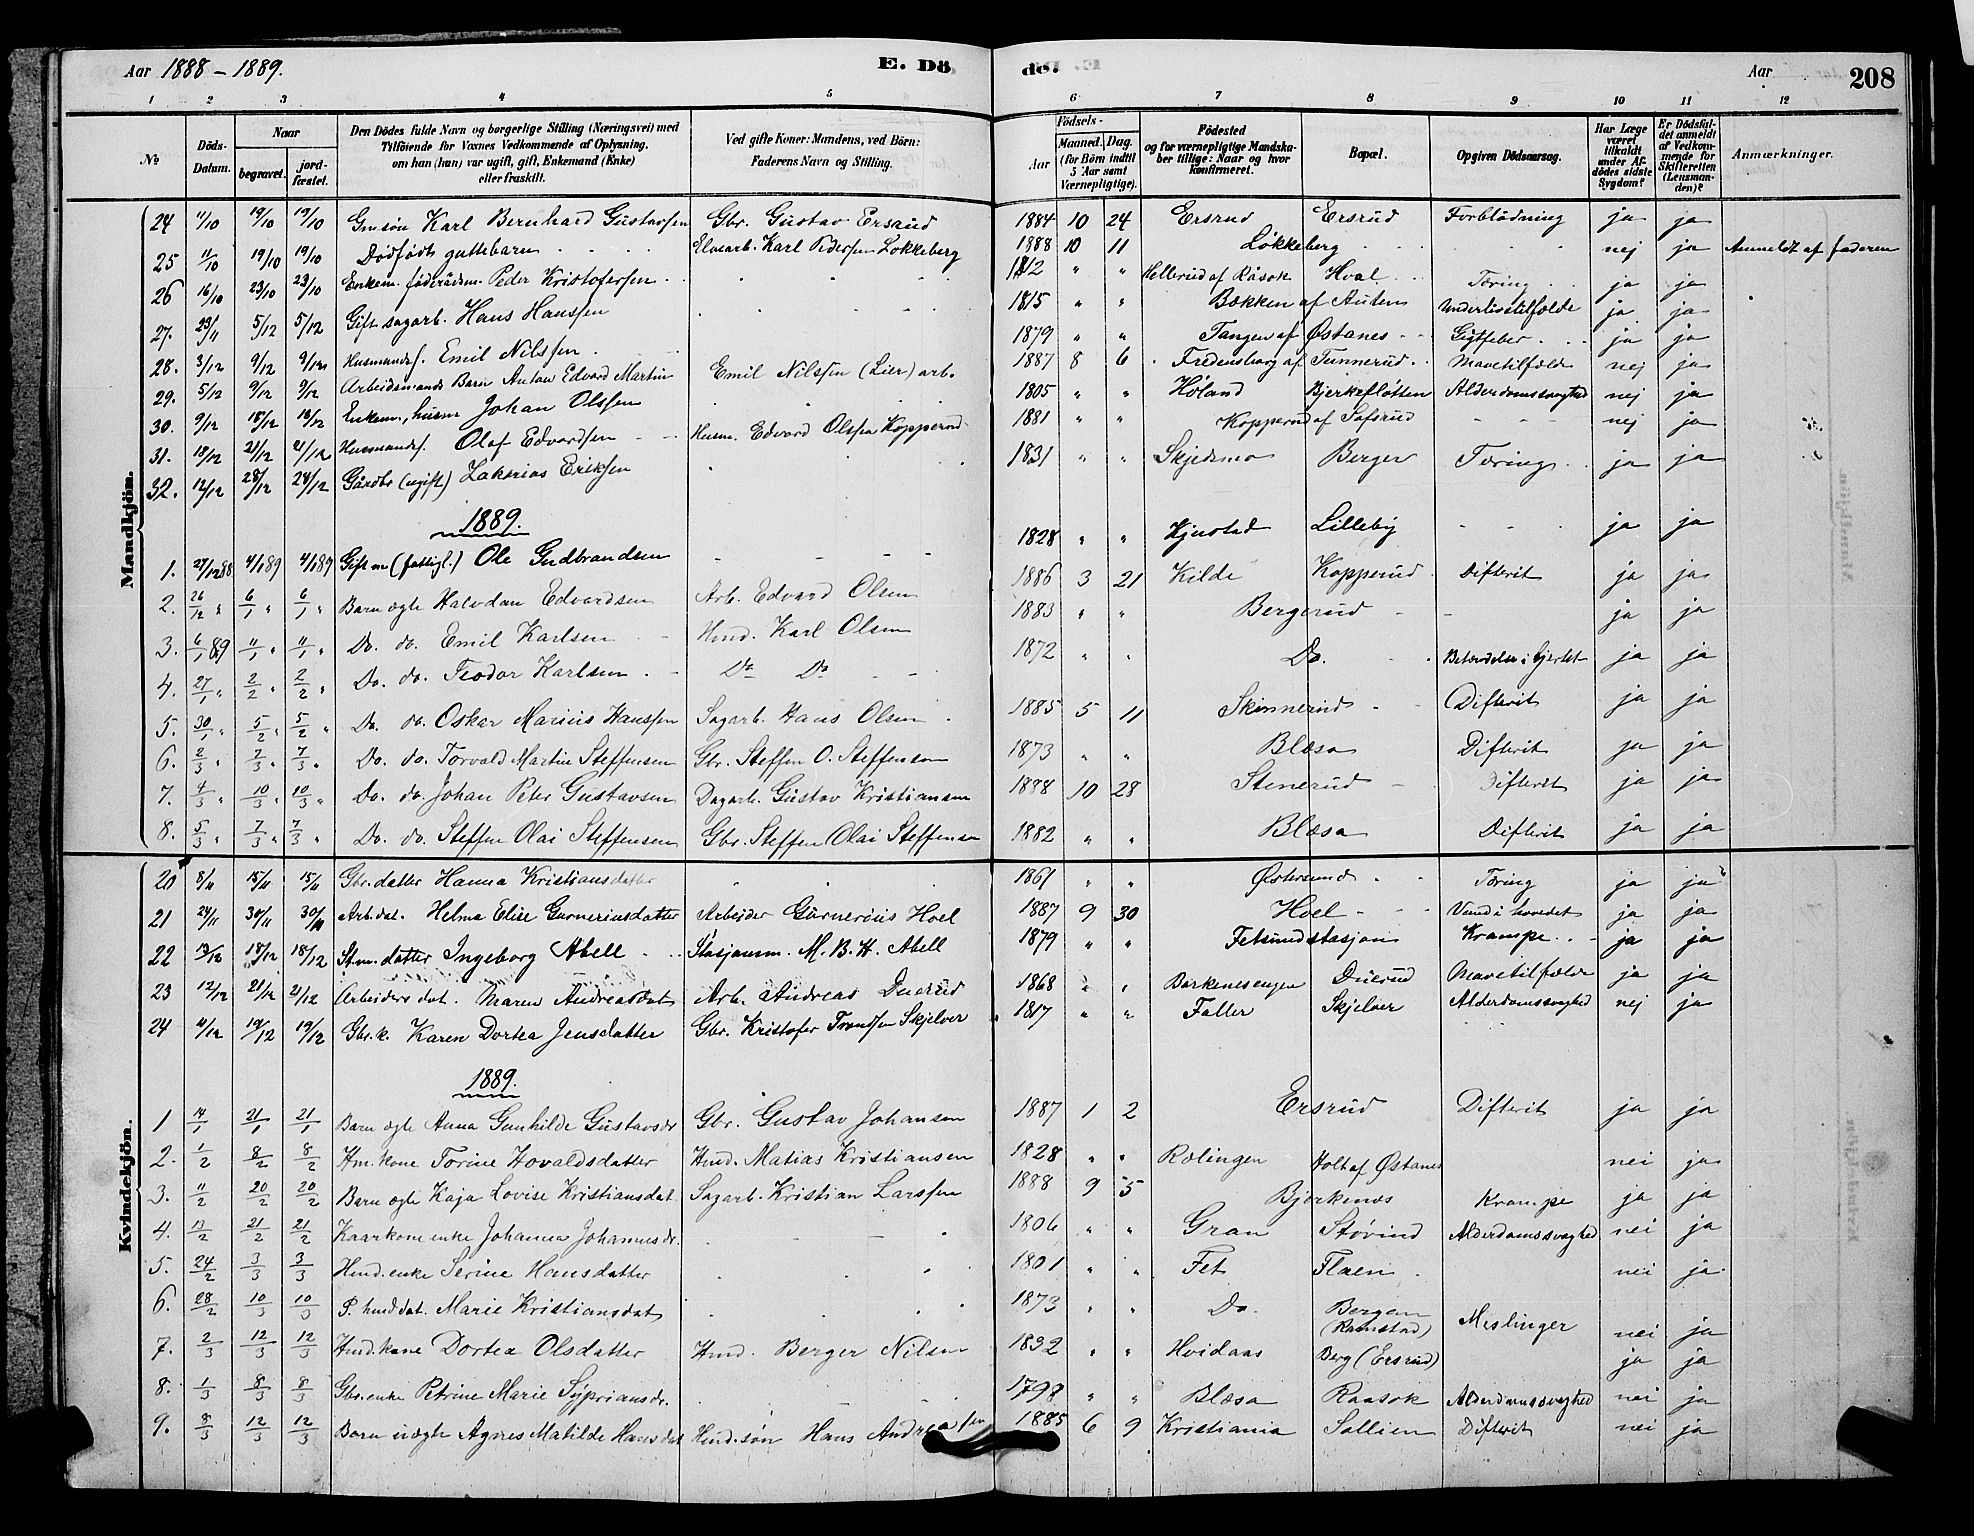 Aar 1888 - 1889. E. Dö de. Aar 208
1 2 3 4 5 6 7 8 9 10 11 12
№ Döds-Datum. Naar begravet. jord-fæstet. Den Dödes fulde Navn og borgerlige Stilling (Næringsvei) med Tilföiende for Voxnes Vedkommende af Oplysning, om han (hun) var ugift, gift, Enkemand (Enke) eller fraskilt. Ved gifte Koner: Mandens, ved Börn: Faderens Navn og Stilling. Födsels- Aar Maaned. Dag. (for Börn indtil 5 Aar samt Værnepligtige). Födested og for værnepligtige Mandskaber tillige: Naar og hvor konfirmeret. Bopæl. Opgiven Dödsaarsag. Har Læge været tilkaldt under Afdödes sidste Sygdom? Er Dödsfaldet anmeldt af Vedkommende for Skifteretten (Lensmanden)? Anmærkninger.
Mandkjön.
24 11/10 19/10 19/10 Gmsön Karl Bernhard Gustavsen Gbr. Gustav Ersrud 1884 10 24 Ersrud Ersrud Forblödning ja ja
25 11/10 19/10 19/10 Dödfödt guttebarn Karl Pedersen Lökkeberg 1888 10 11 Lökkeberg nej ja Anmeldt af faderen
26 16/10 23/10 23/10 Enkem. föderådsm. Peder Kristofersen 1812 " " Hellerud af Råsok Hval Tæring ja ja
27. 23/11 5/12 5/12 Gift sagarb. Hans Hanssen 1815 " " Bækken af Auten Underlivstilfælde ja ja
28. 3/12 9/12 9/12 Husmandss. Emil Nilssen 1879 " " Tangen af Østanes Gigtfeber ja ja
29. 5/12 9/12 9/12 Arbeidsmands Barn Anton Edvard Martin Emil Nilssen (Lier) arb. 1887 8 6 Fredensborg af Tunnerud Mavetilfælde nej ja
30. 9/12 18/12 18/12 Enkem., husm Johan Olssen 1805 " " Høland Bjerkefløtten Alderdomssvaghed nej ja
31. 18/12 21/12 21/12 Husmandss. Olaf Edvardsen Husm. Edvard Olssen Kopperud 1881 " " Kopperud af nej ja
32. 12/12 28/12 28/12 Gårdbr (ugift) Zakarias Eriksen 1831 " " Skjedsmo Berger Tæring ja ja
1889.
1. 27/12 88 4/1 89 4/1 89 Gift m (fattigl.) Ole Gudbrandsen 1828 " " Hjustad Lilleby ja ja
2. 26/12 " 6/1 " 6/1 " Barn ægte Halvdan Edvardsen Arb. Edvard Olsen 1886 3 21 Kilde Kopperud Difterit ja ja
3. 6/1 89 11/1 " 11/1 " Do. do. Emil Karlsen Hmd. Karl Olsen 1883 " " Bergerud ja ja
4. 27/1 " 2/2 " 2/2 " Do. do. Teodor Karlsen Do Do 1872 " " Do. Betændelse i hjertet ja ja
5. 30/1 " 5/2 " 5/2 " Do. do. Oskar Marius Hanssen Sagarb. Hans Olsen 1885 5 11 Skinnerud Difterit ja ja
6. 2/3 " 7/3 " 7/3 " Do. do. Torvald Martin Steffensen Gbr. Steffen O. Steffensen 1873 " " Blæsa Difterit ja ja
7. 4/3 " 10/3 " 10/3 " Do. do. Johan Peter Gustavsen Dagarb. Gustav Kristiansen 1888 10 28 Stenerud Difterit ja ja
8. 5/3 " 7/3 " 7/3 " Do. do. Steffen Olai Steffensen Gbr. Steffen Olai Steffensen 1882 " " Blæsa Difterit ja ja
Kvindekjön.
20 8/11 15/11 15/11 Gbr.datter Hanna Kristiansdatter 1861 " " Østersund Tæring ja ja
21 24/11 30/11 30/11 Arb.dat. Helma Elise Gunneriusdatter Arbeider Gunnerius Hoel 1887 9 30 Hoel Vand i hovedet ja ja
22 13/12 18/12 18/12 St.m. datter Ingeborg Abell Stasjonsm. M. B. H. Abell 1879 " " Fetsund stasjon Krampe ja ja
23 12/12 21/12 21/12 Arbeiders dat. Maren Andreasdat Arb. Andreas Duerud 1868 " " Børkenesengen Duerud Mavetilfælde ja ja
24 11/12 19/12 19/12 Gbr.k. Karen Dortea Jensdatter Gbr. Kristofer Trondsen Skjelver 1817 " " Faller Skjelver Alderdomssvaghed nej ja
1889.
1 14/1 21/1 21/1 Barn ægte Anna Gunhilde Gustavsdr Gbr. Gustav Johansen 1887 1 2 Ersrud Difterit ja ja
2. 1/2 8/2 8/2 Hm.kone Torine Hovaldsdatter Hmd. Matias Kristiansen 1828 " " Rælingen Holt af Østanes nei ja
3. 11/2 20/2 20/2 Barn ægte Kaja Lovise Kristiansdat. Sagarb. Kristian Larssen 1888 9 5 Bjerkenes Krampe ja ja
4. 13/2 21/2 21/2 Kaarkone enke Johanna Johannesdr. 1806 " " Gran Støvind Alderdomssvaghed nei ja
5. 24/2 3/3 3/3 Hmd.enke Serine Hansdatter 1801 " " Fet Flaen nei ja
6. 28/2 10/3 10/3 P. hmd dat. Marie Kristiansdat 1873 " " Do. Bergem (Ramstad) Meslinger nei ja
7. 2/3 12/3 12/3 Hmd.kone Dortea Olsdatter Hmd. Berger Nilsen 1832 " " Hvidaas Berg (Ersrud) ja ja
8. 1/3 8/3 8/3 Gbr.enke Petrine Marie Syprians dr. 1798 " " Blæsa Raasok Alderdomssvaghed nei ja
9. 8/3 12/3 12/3 Barn uægte Agnes Matilde Hansdat Hmd.søn Hans Andreassen 1885 6 9 Kristiania Sallien Difterit nei ja